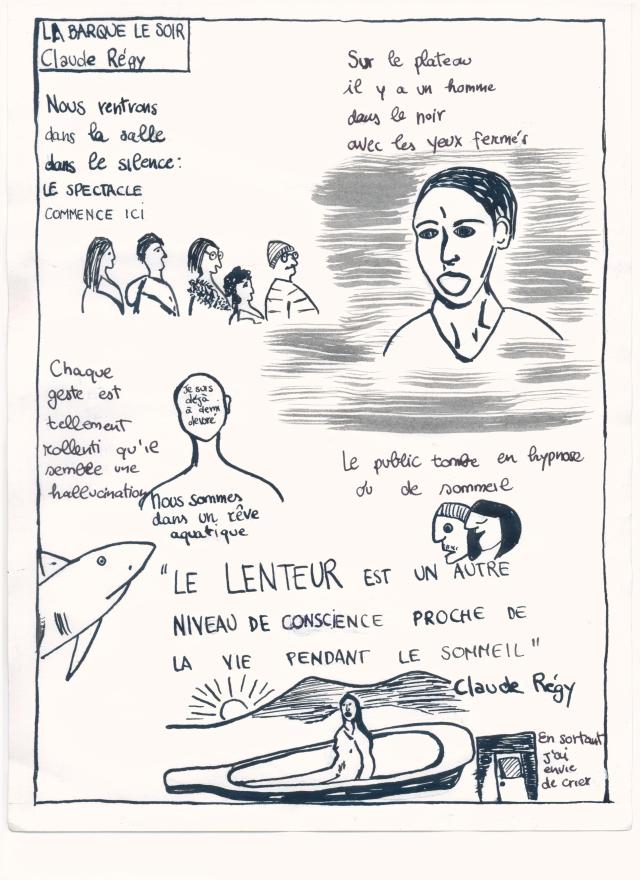 LA BARQUE LE SOIR
Claude Régy
Nous rentrons
dans la salle
dans le silence:
LE SPECTACLE
COMMENCE ICI
Sur le plateau
il y a un homme
dans le noir
avec les yeux fermés
Chaque
geste est
tellement
rallenti qu'il
semble une
hallucination
Je suis
déjà
à demi
dévoré
Nous sommes
dans un rêve
aquatique
Le public tombe en hypnose
ou de sommeil
"LE LENTEUR EST UN AUTRE
NIVEAU DE CONSCIENCE PROCHE DE
LA VIE PENDANT LE SOMMEIL"
Claude Régy
En sortant
j'ai
envie
de crier